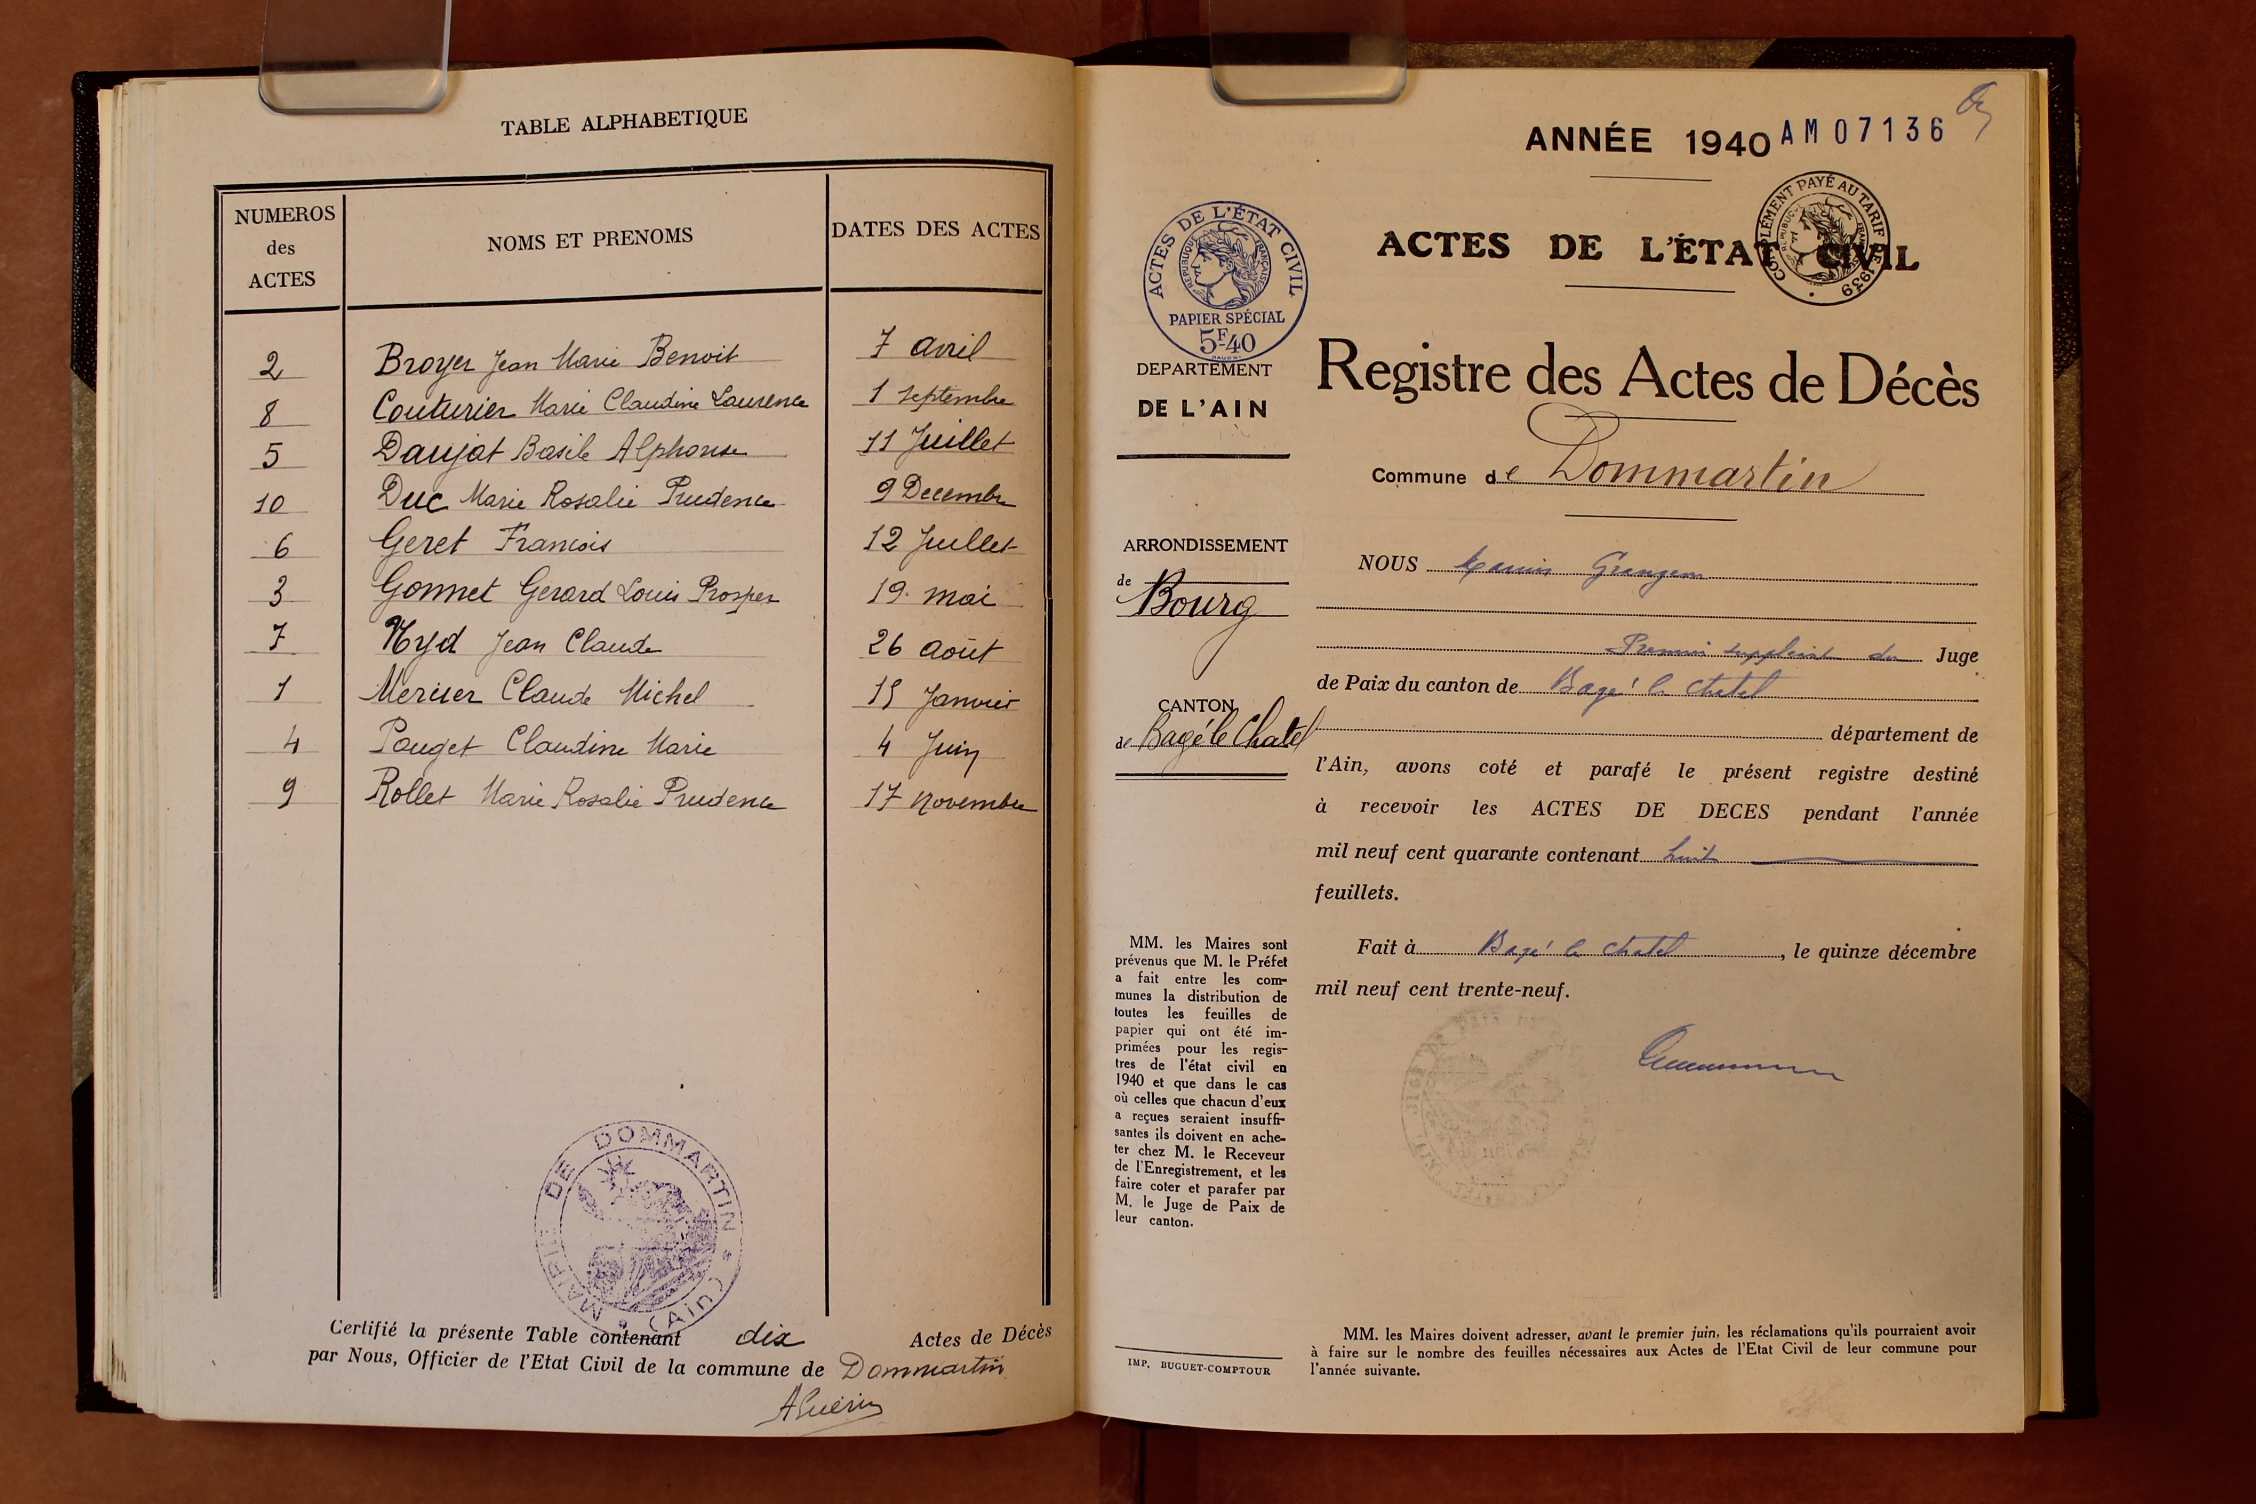 TABLE ALPHABETIQUE
NUMEROS des ACTES
NOMS ET PRENOMS
DATES DES ACTES
2 Broyer Jean Marie Benoit 7 avril
8 Couturier Marie Claudine Laurence 1 septembre
5 Daujat Basile Alphonse 11 Juillet
10 Duc Marie Rosalie Prudence 9 Decembre
6 Geret Francois 12 Juillet
3 Gonnet Gerard Louis Prosper 19 mai
7 Jean Claude 26 août
1 Claude Michel 15 Janvier
4 Pouget Claudine Marie 4 Juin
9 Rollet Marie Rosalie Prudence 17 novembre
MAIRIE DE DOMMARTIN (Ain)
Certifié la présente Table contenant dix Actes de Décès
par Nous, Officier de l'Etat Civil de la commune de Dommartin
AGuérin
ANNÉE 1940 AM07136
ACTES DE L'ÉTAT CIVIL
RÉPUBLIQUE FRANÇAISE
PAPIER SPÉCIAL
5F40
COMPLÉMENT PAYÉ AU TARIF DE 1939
ACTES DE L'ÉTAT CIVIL
DEPARTEMENT
DE L'AIN
Registre des Actes de Décès
Commune de Dommartin
ARRONDISSEMENT
de Bourg
CANTON
de Bagé le Chatel
NOUS
Premier suppléant du Juge
de Paix du canton de Bagé le Chatel
département de
l'Ain, avons coté et parafé le présent registre destiné
à recevoir les ACTES DE DECES pendant l'année
mil neuf cent quarante contenant huit
feuillets.
Fait à Bagé le Chatel, le quinze décembre
mil neuf cent trente-neuf.
MM. les Maires sont
prévenus que M. le Préfet
a fait entre les com-
munes la distribution de
toutes les feuilles de
papier qui ont été im-
primées pour les regis-
tres de l'état civil en
1940 et que dans le cas
où celles que chacun d'eux
a reçues seraient insuffi-
santes ils doivent en ache-
ter chez M. le Receveur
de l'Enregistrement, et les
faire coter et parafer par
M. le Juge de Paix de
leur canton.
IMP. BUGUET-COMPTOUR
MM. les Maires doivent adresser, avant le premier juin, les réclamations qu'ils pourraient avoir
à faire sur le nombre des feuilles nécessaires aux Actes de l'Etat Civil de leur commune pour
l'année suivante.